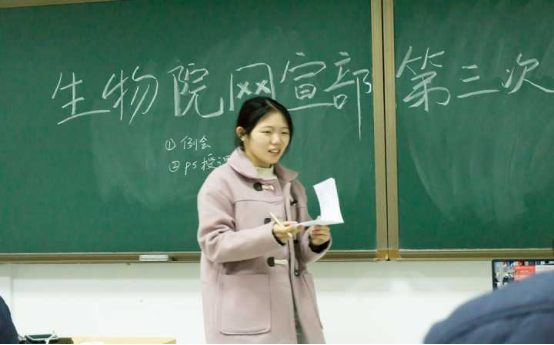 生物院网宣部第三次
①例会
②PS授课